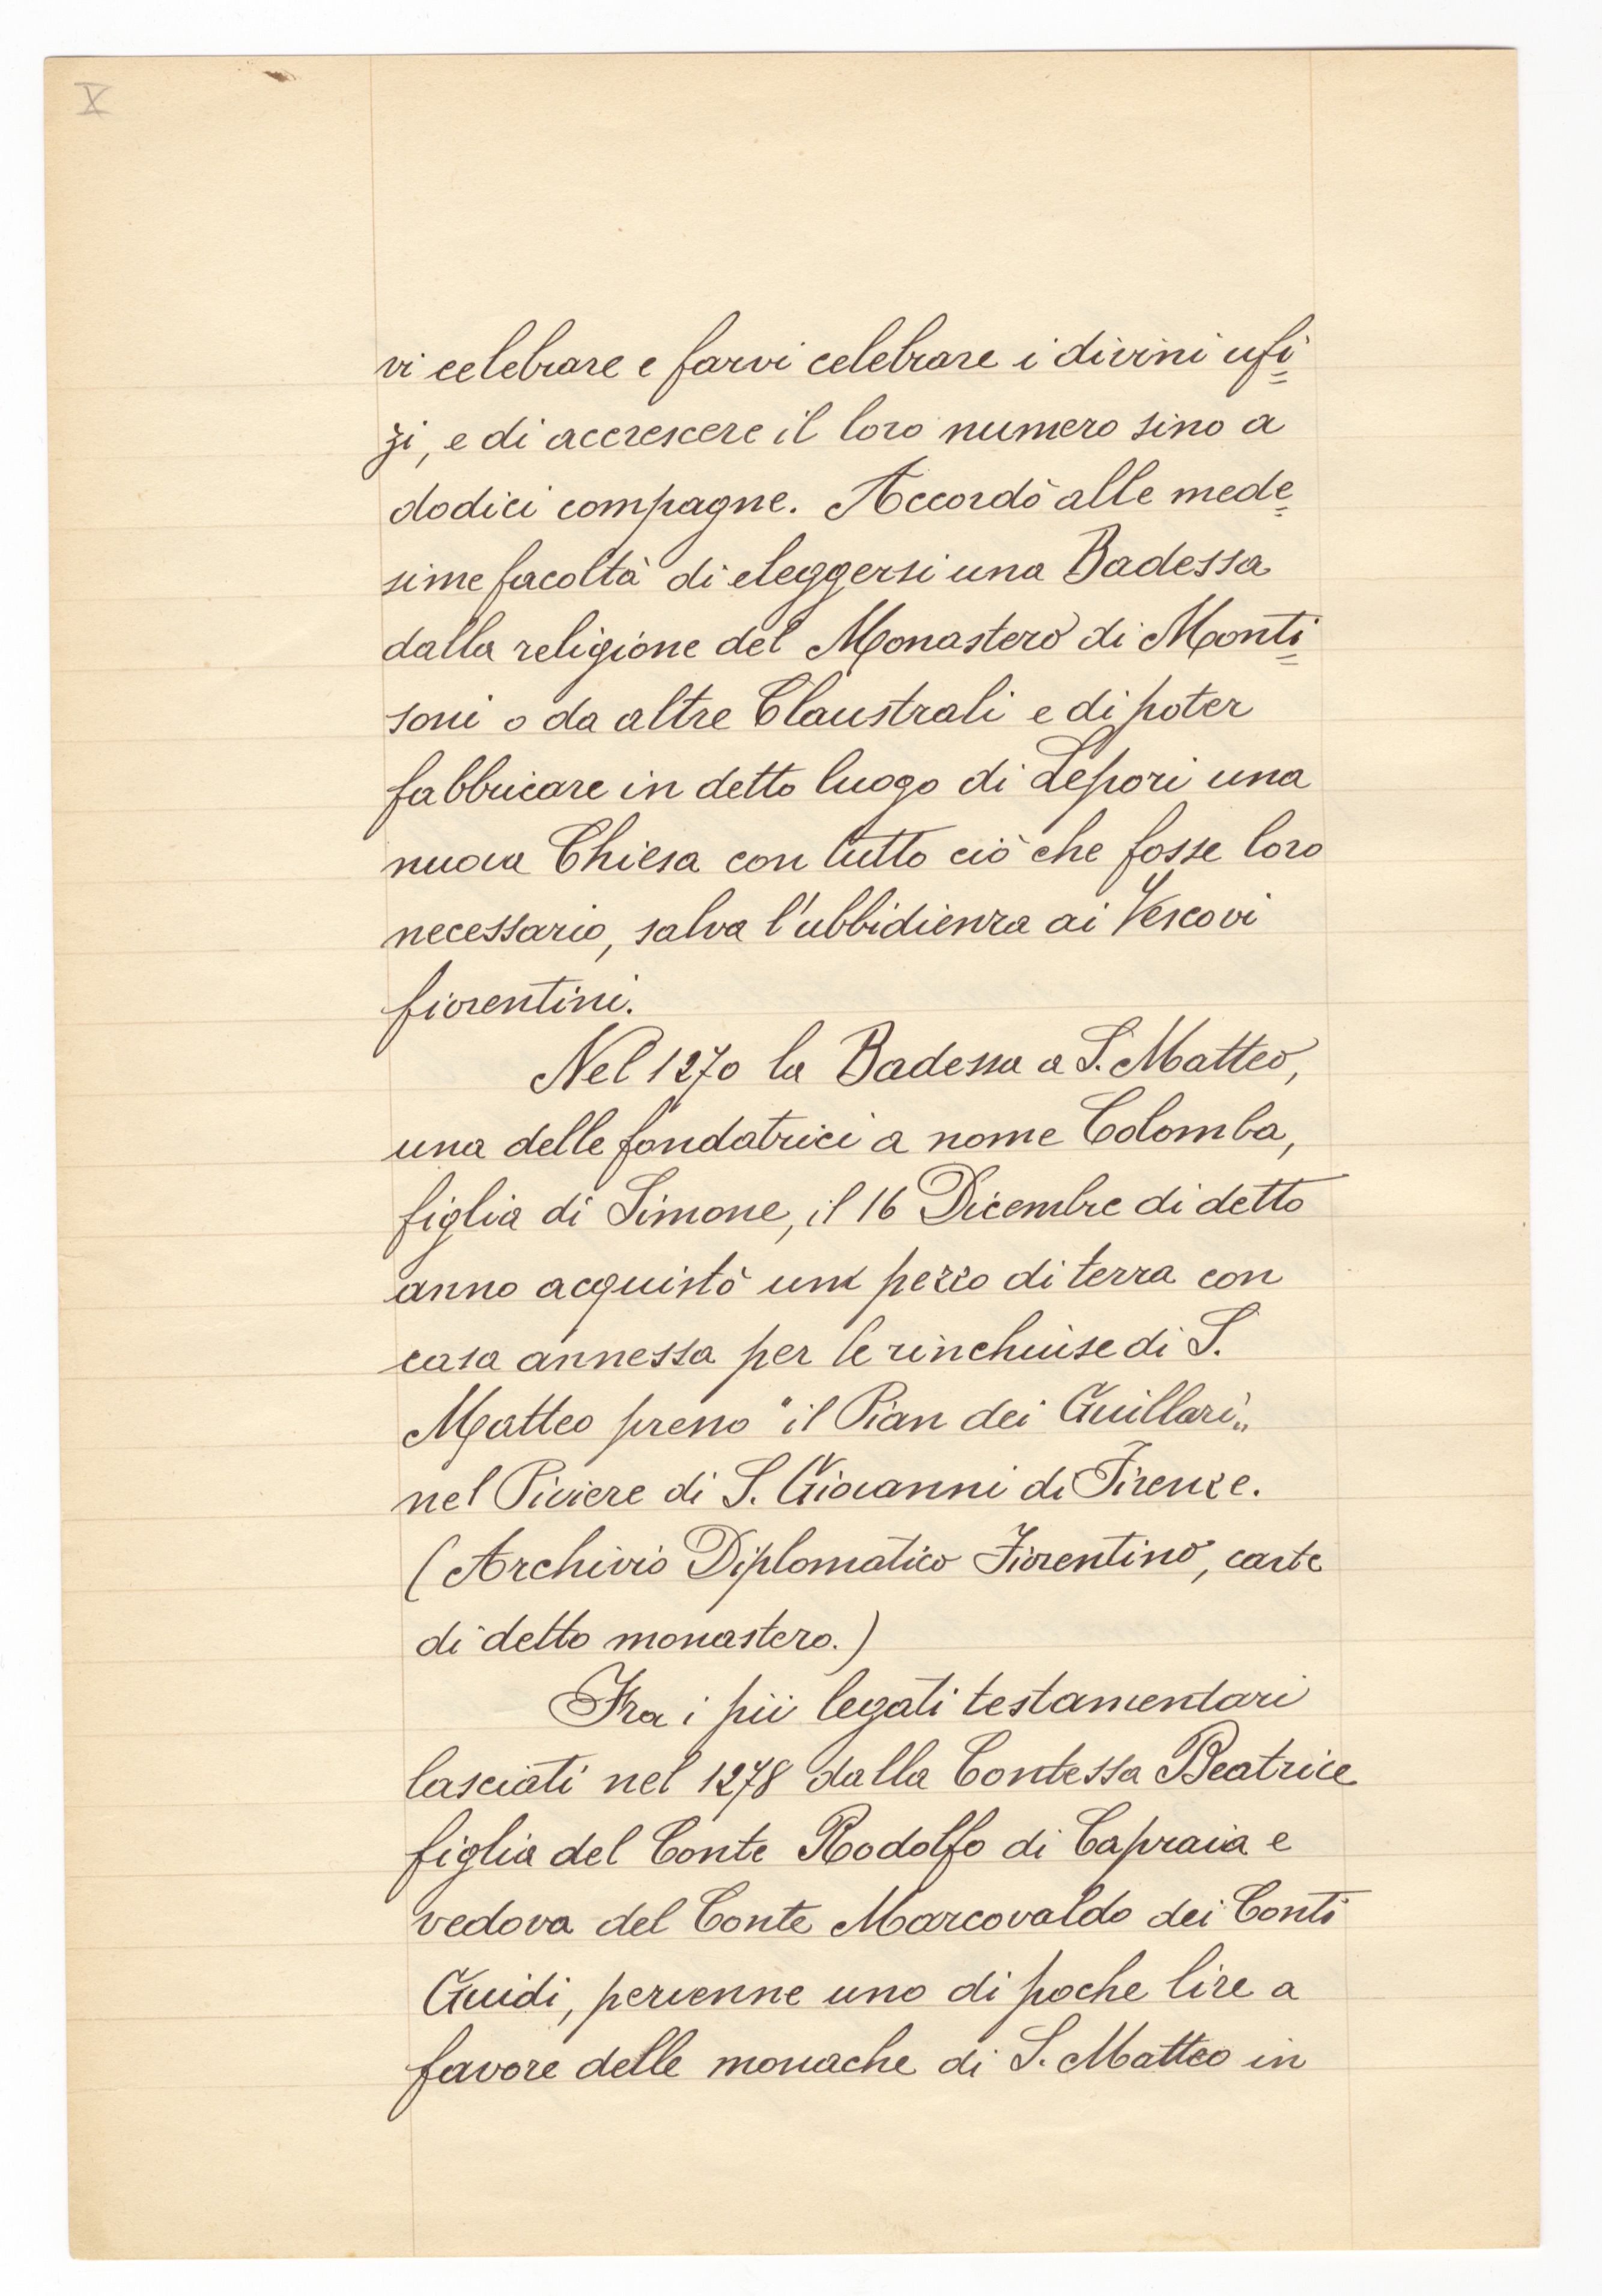 X
vi celebrare e farvi celebrare i divini ufi=
zi, e di accrescere il loro numero sino a
dodici compagne. Accordò alle mede=
sime facoltà di eleggersi una Badessa
dalla religione del Monastero di Monti=
soni o da altre Claustrali e di poter
fabbricare in detto luogo di Lepori una
nuova Chiesa con tutto ciò che fosse loro
necessario, salva l'ubbidienza ai Vescovi
fiorentini.
Nel 1270 la Badessa a S. Matteo,
una delle fondatrici a nome Colomba,
figlia di Simone, il 16 Dicembre di detto
anno acquistò un pezzo di terra con
casa annessa per le rinchiuse di S.
Matteo presso "il Pian dei Guillari„
nel Piviere di S. Giovanni di Firenze.
(Archivio Diplomatico Fiorentino, carte
di detto monastero.)
Fra i più legati testamentari
lasciati nel 1278 dalla Contessa Beatrice
figlia del Conte Rodolfo di Capraia e
vedova del Conte Marcovaldo dei Conti
Guidi, pervenne uno di poche lire a
favore delle monache di S. Matteo in